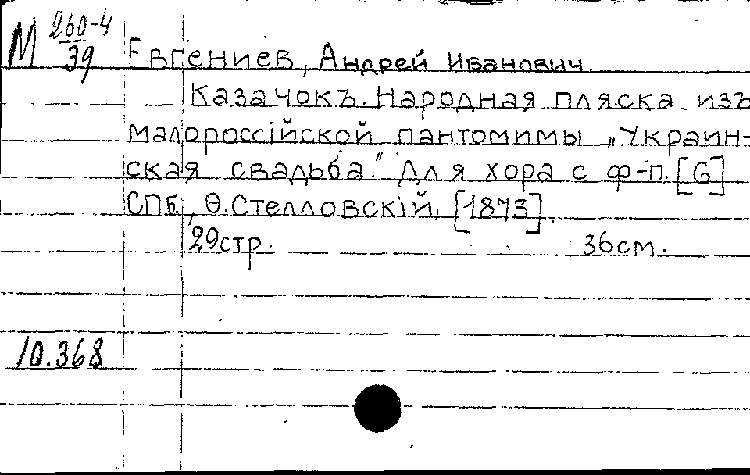 М 260-4
39
Евгениев, Андрей Иванович
Казачокъ. Народная пляска изъ
малороссійской пантомимы „Украин-
ская свадьба." Для хора с ф-п. [G]
СПб, Ѳ. Стелловскій, [1873].
29стр. 36см.
10.368